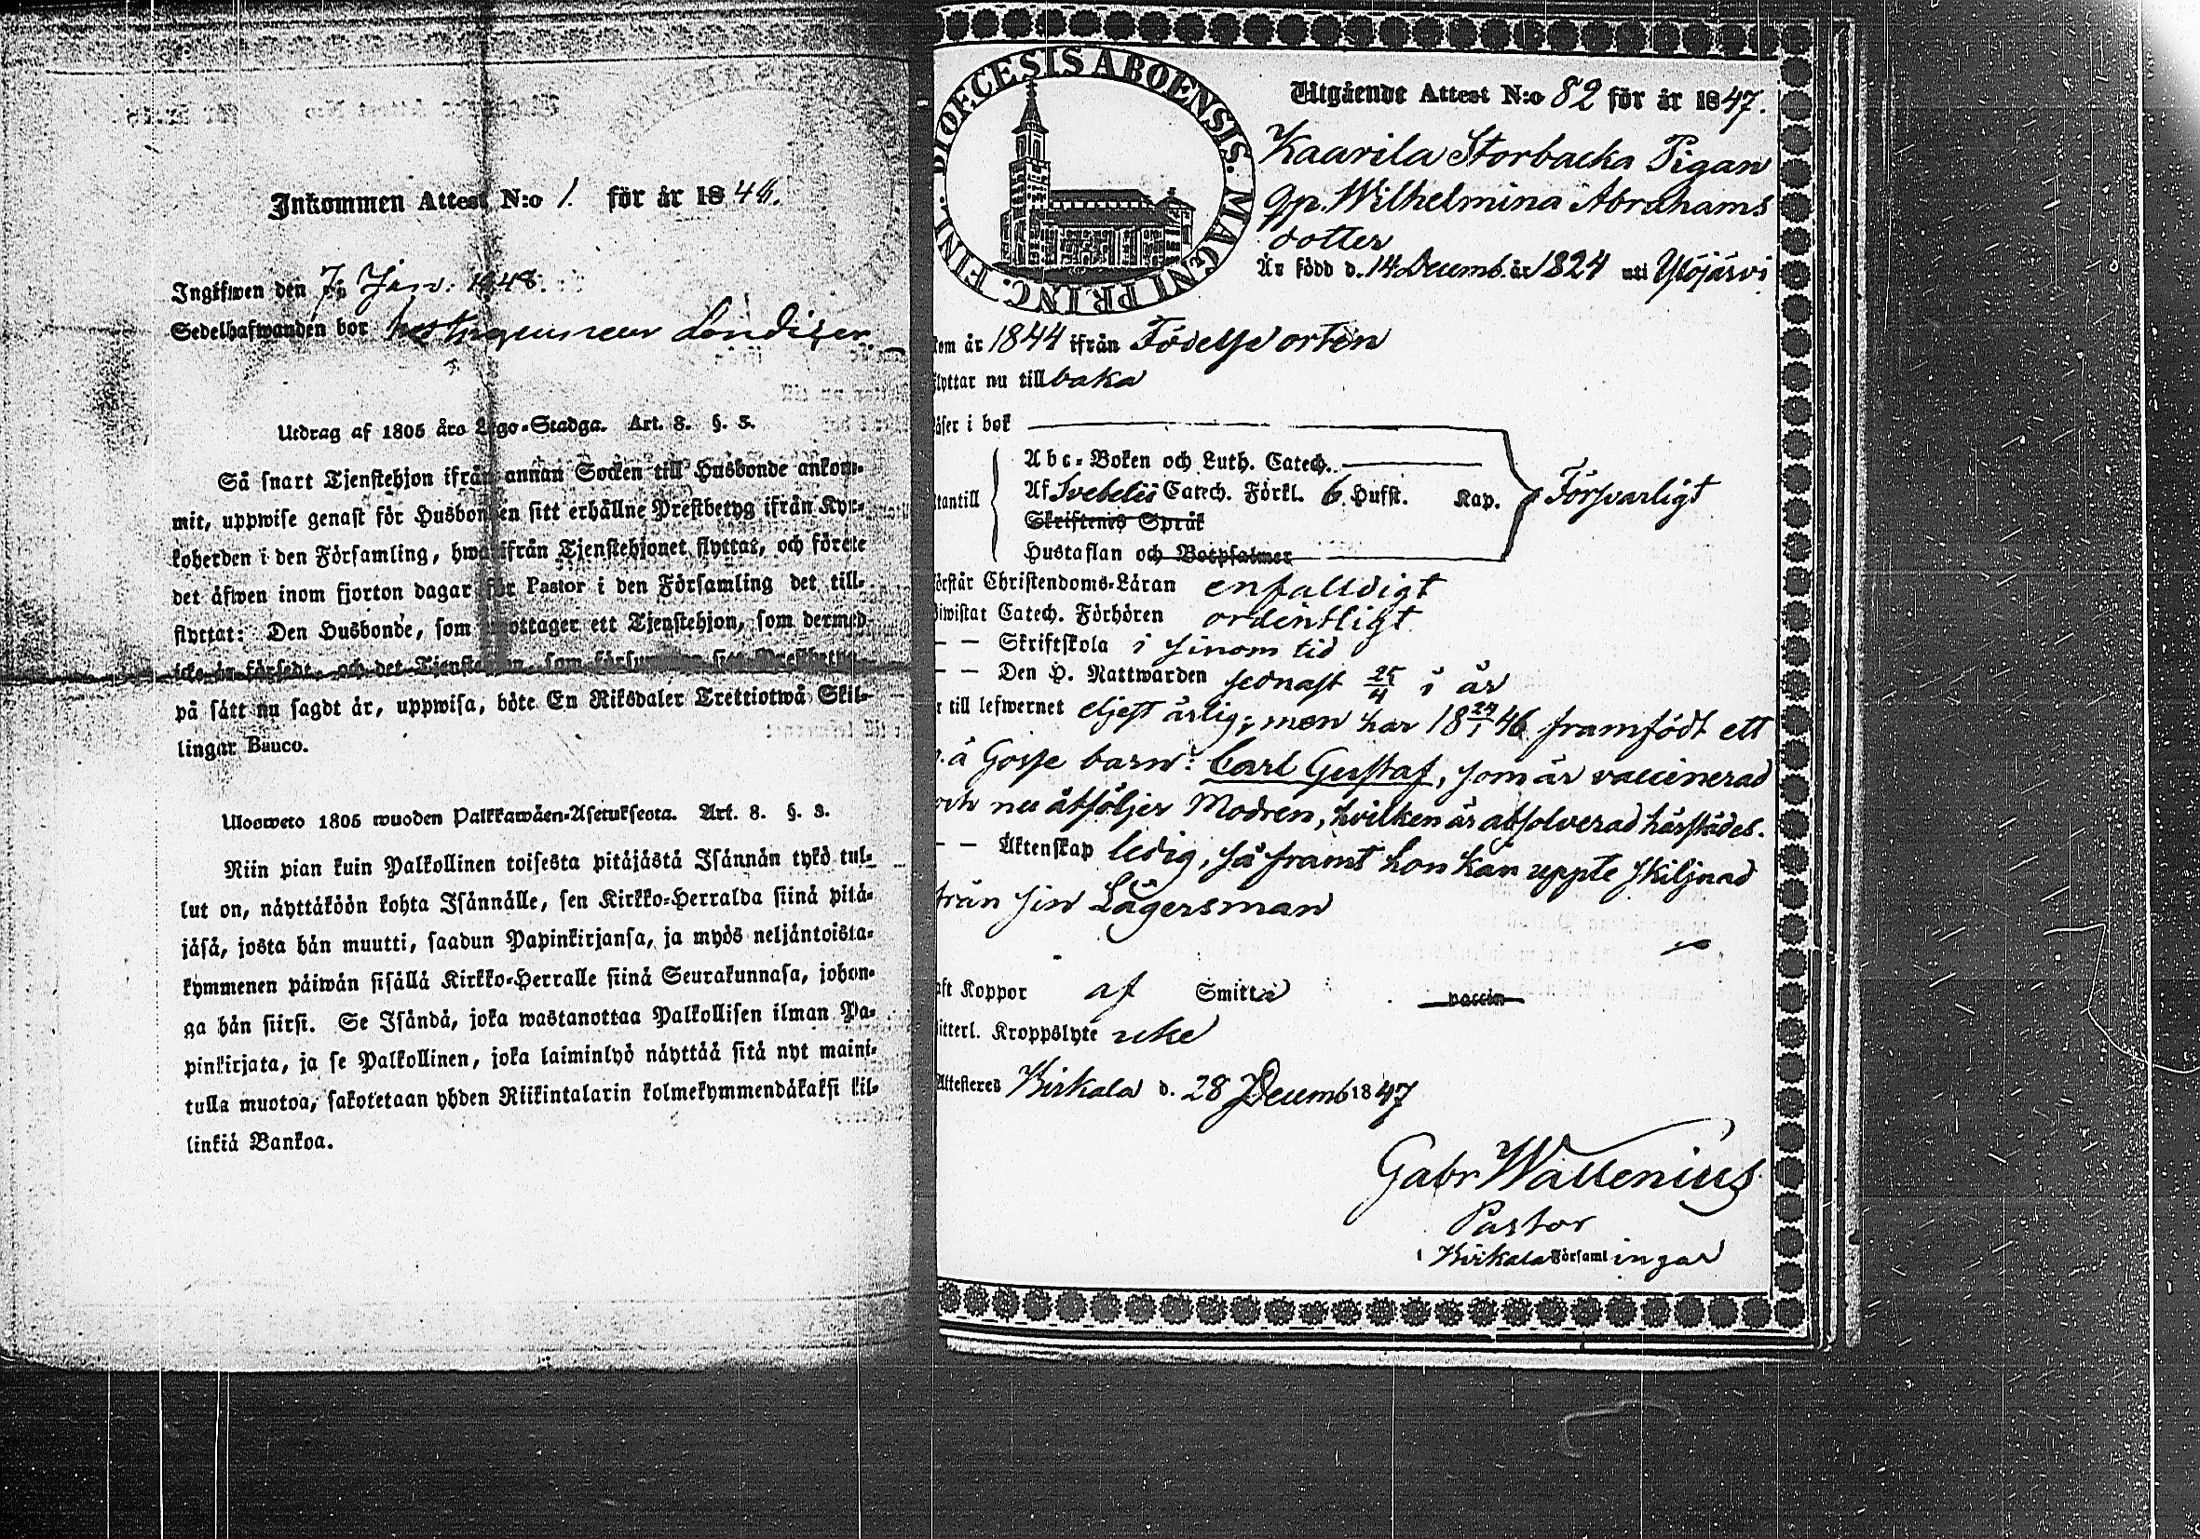 Inkommen Attest N:o 1. för år 1848.
Ingifwen den 7 Jan. 1848.
Sedelhafwanden bor hos
Utdrag af 1805 års Lego-Stadga. Art. 8. §. 3.
Så snart Tjenstehjon ifrån annan Socken till Husbonde ankom-
mit, uppwise genast för Husbonden sitt erhållne Prestbetyg ifrån Kyr-
koherden i den Församling, hwarifrån Tjenstehjonet flyttat, och förete
det äfwen inom fjorton dagar för Pastor i den Församling det till-
flyttat: Den Husbonde, som emottager ett Tjenstehjon, som dermed
icke är försedt, och det Tjenstehjon, som försummar sitt Prestbetyg
på sätt nu sagdt är, uppwisa, böte En Riksdaler Trettiotwå Skil-
lingar Banco.
Ulosweto 1805 wuoden Palkkawäen-Asetuksesta. Art. 8. §. 3.
Niin pian kuin Palkollinen toisesta pitäjästä Isännän tykö tul-
lut on, näyttäköön kohta Isännälle, sen Kirkko-Herralda siinä pitä-
jäsä, josta hän muutti, saadun Papinkirjansa, ja myös neljäntoista-
kymmenen päiwän sisällä Kirkko-Herralle siinä Seurakunnasa, johon-
ga hän siirsi. Se Isändä, joka wastanottaa Palkollisen ilman Pa-
pinkirjata, ja se Palkollinen, joka laiminlyö näyttää sitä nyt maini-
tulla muotoa, sakotetaan yhden Riikintalarin kolmekymmendäkaksi kil-
linkiä Bankoa.
DIOECESIS ABOENSIS. MAGNI PRINC. FINL.
Utgående Attest N:o 82 för år 1847.
Kaarila Storbacka Pigan
qp. Wilhelmina Abrahams
dotter
Är född d. 14 Decemb. år 1824 uti Ylöjärvi
kom år 1844 ifrån Födelse orten
flyttar nu tillbaka
läser i bok
Abc-Boken och Luth. Catech.
utantill Af Svebelii Catech. Förkl. 6. Hufst. Kap. Försvarligt
Skriftenes Språk
Hustaflan och Botpsalmer
förstår Christendoms-Läran enfalldigt
biwistat Catech. Förhören ordentligt
— — Skriftskola i sinom tid
— — Den H. Nattwarden sednast 25/4 i år
är till lefwernet eljest ärlig; men har 18 24/1 46 framfödt ett
o.ä Gosse barn: Carl Gustaf, som är vaccinerad
och nu åtföljer Modren, hvilken är absolverad härstädes.
— — Äktenskap ledig, så framt hon kan uppte skiljnad
från sin Lägersman
haft Koppor af Smitta vaccin
Witterl. Kroppslyte icke
Attesteres Birkala d. 28 Decemb 1847
Gabr Wallenius
Pastor
i Birkala Församlingar